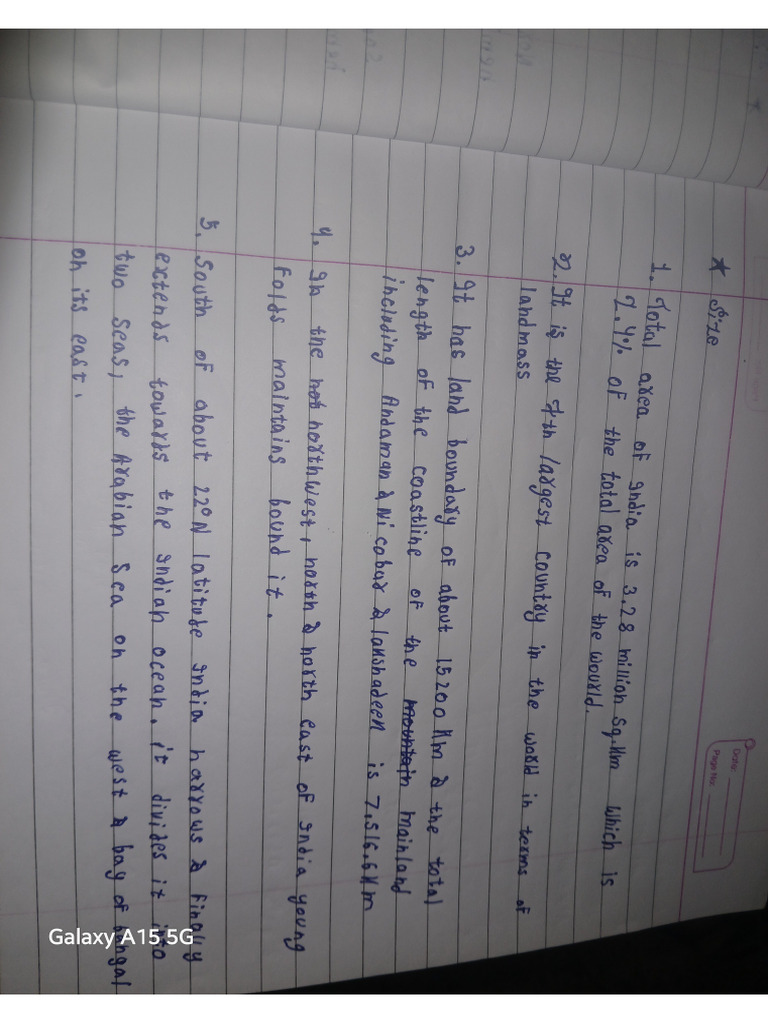 Date:
Page No:
★ Size
1. Total area of India is 3.28 million Sq.Km which is
2.4% of the total area of the wourld.
2. It is the 7th largest country in the world in terms of
landmass
3. It has land boundary of about 15200 Km & the total
length of the coastline of the mountain mainland
including Andaman & Nicobar & lakshadeen is 7,516.6 Km
4. In the not northwest, north & north east of India young
folds maintains bound it.
5. South of about 22°N latitude India narrows & finally
extends towards the Indian ocean. it divides it into
two seas, the Arabian Sea on the west & bay of bengal
on its east.
Galaxy A15 5G